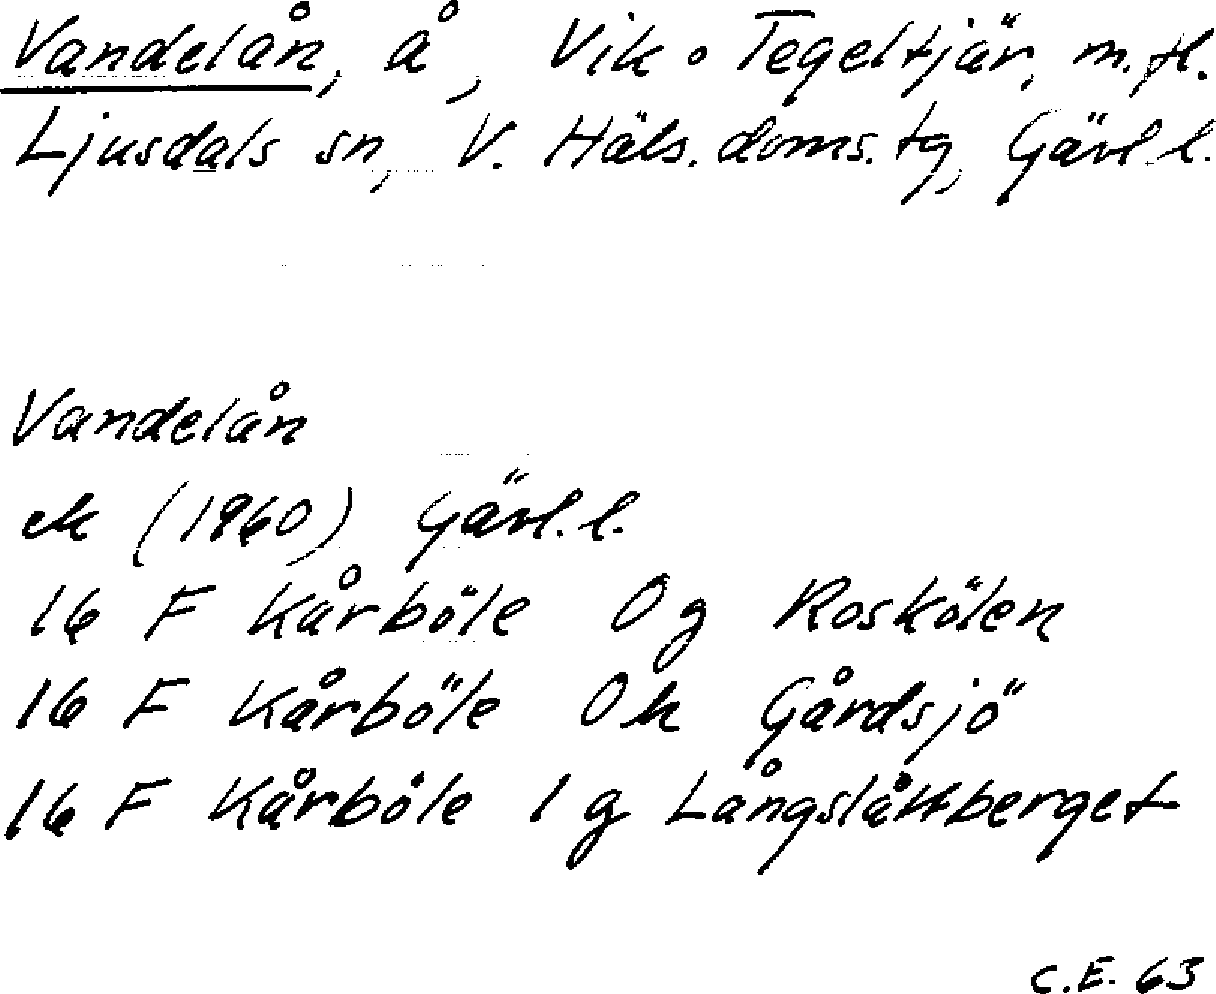 Vandelån, å, Vik o Tegeltjär, m.fl.
Ljusdals sn, V. Häls. doms. tg, Gävl l.
Vandelån
ek (1960) Gävl. l.
16 F Kårböle 0 g Roskölen
16 F Kårböle 0 h Gårdsjö
16 F Kårböle 1 g Långslåttberget
C.E. 63